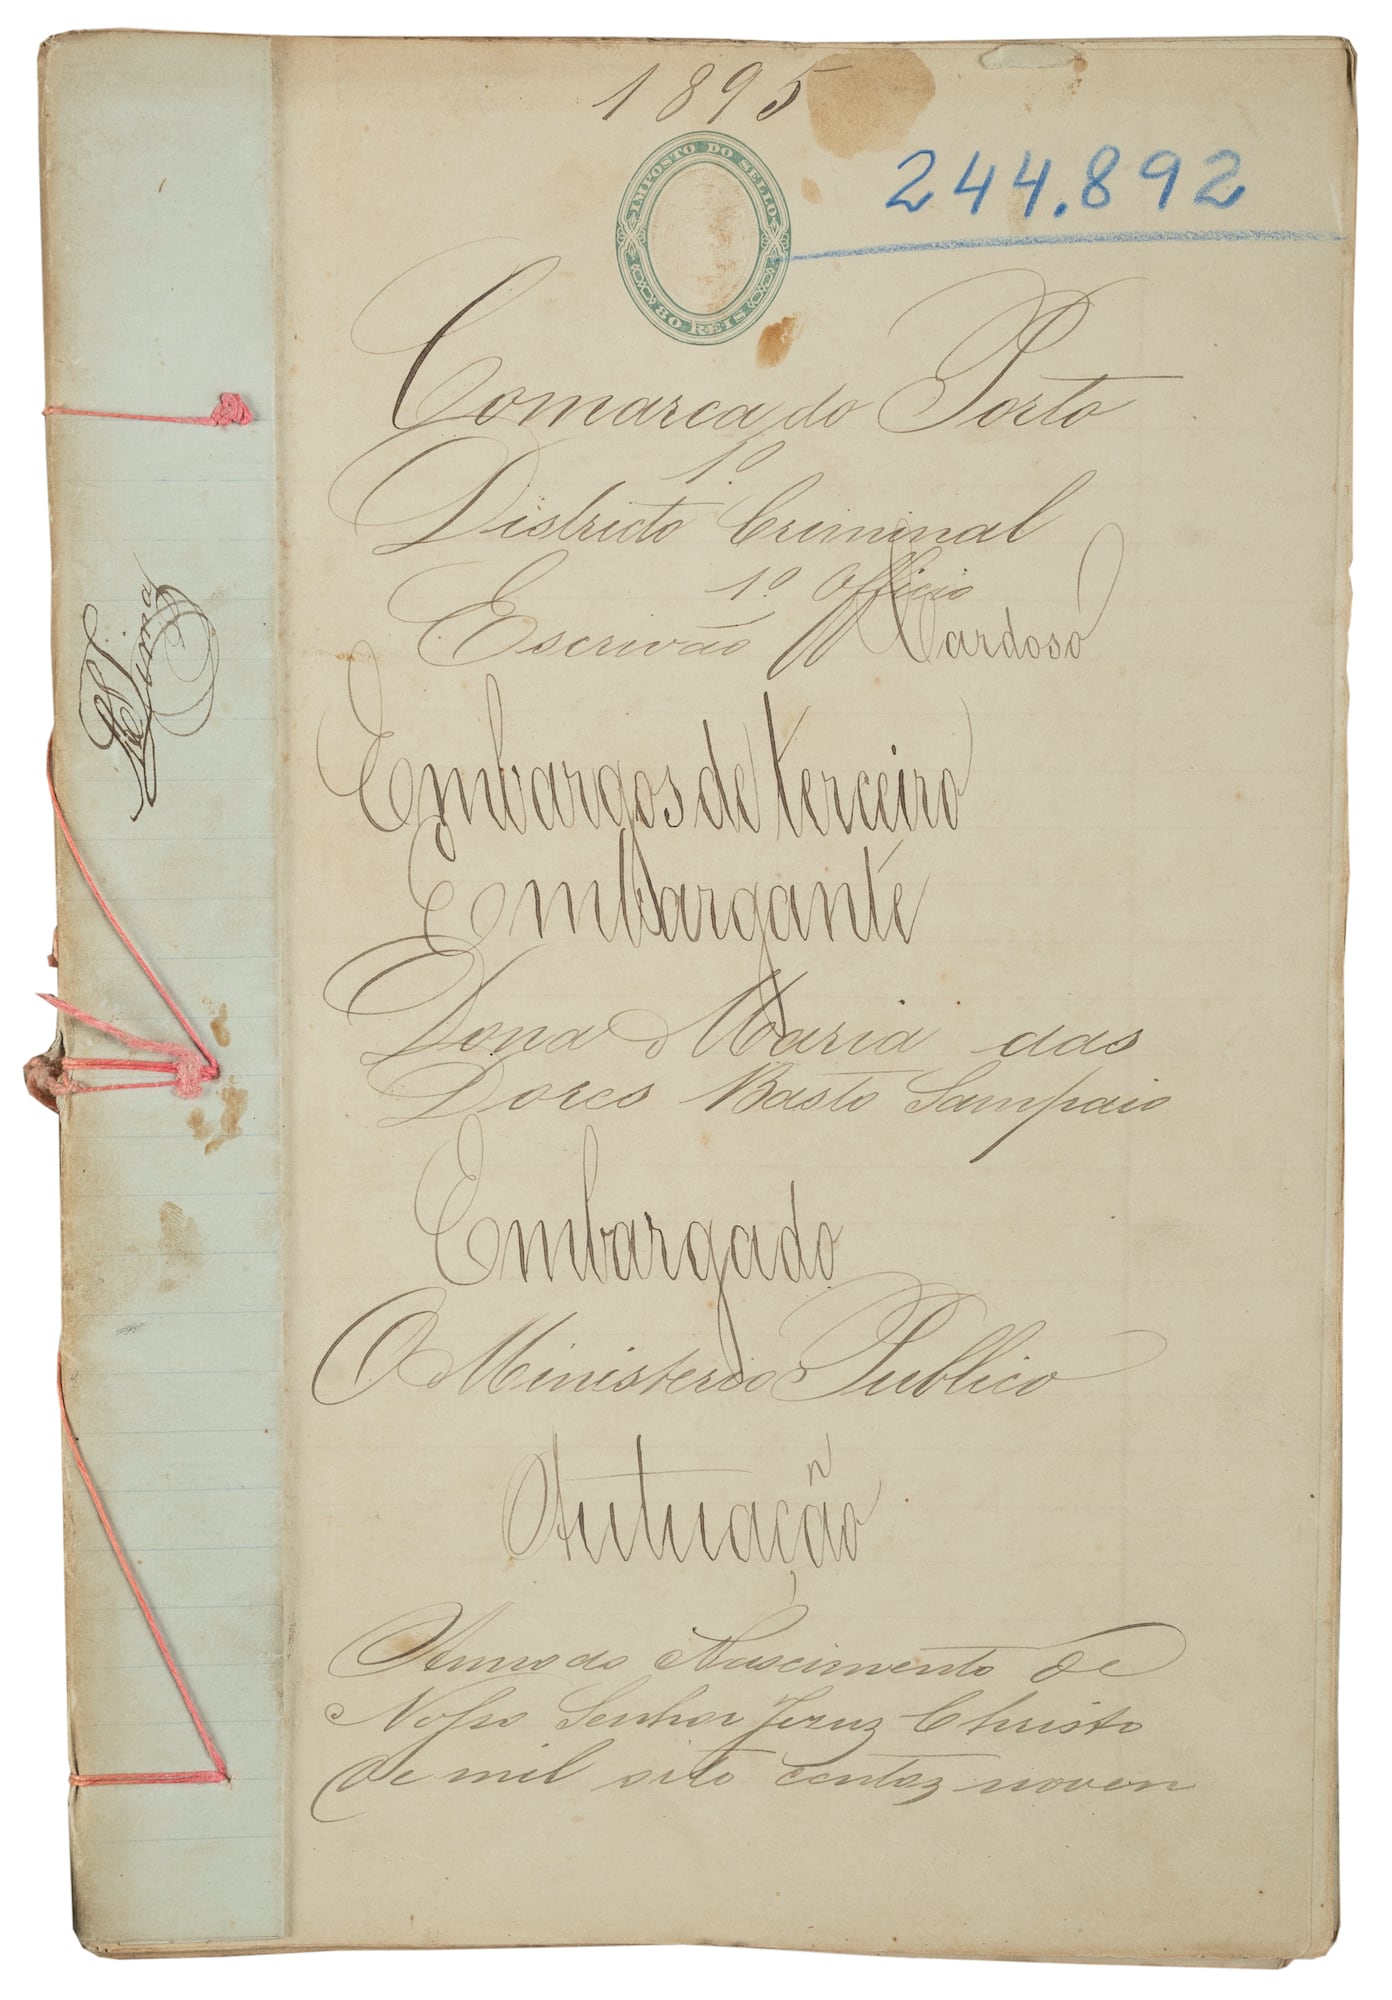 1895
IMPOSTO DO SELLO
80 REIS
244.892
Comarca do Porto
1º
Districto Criminal
1º Officio
Escrivão Cardoso
Lima
Embargos de terceiro
Embargante
Dona Maria das
Dores Basto Sampaio
Embargado
O Ministerio Publico
Autuação
Anno do Nascimento de
Nosso Senhor Jezuz Christo
de mil oito centoz noven